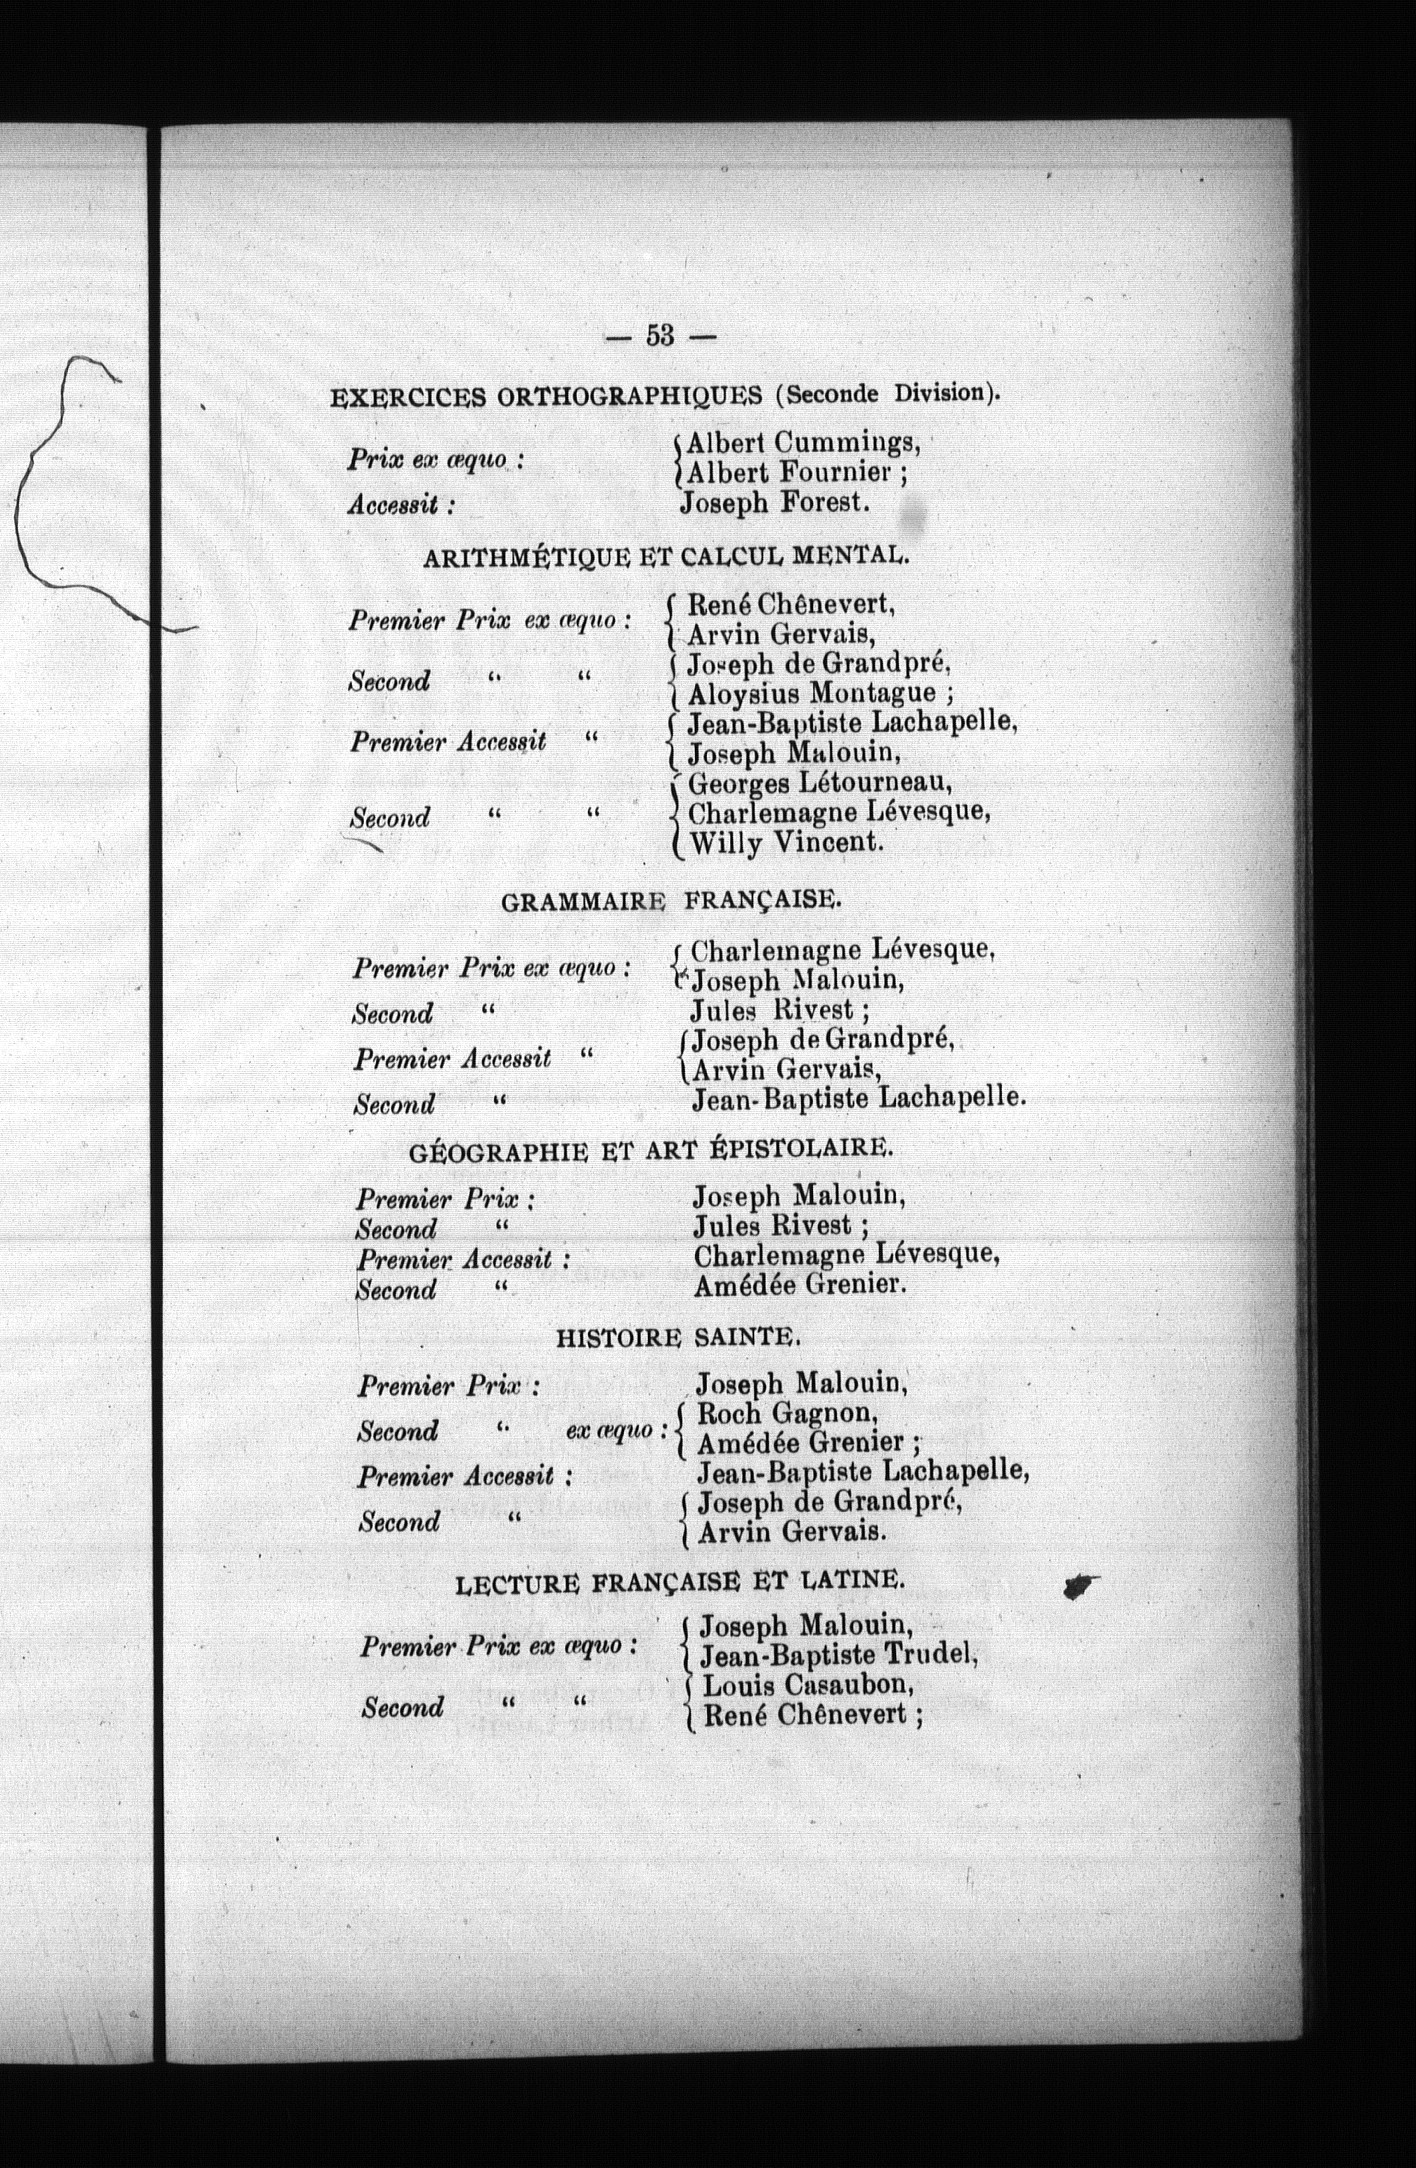 — 53 —
EXERCICES ORTHOGRAPHIQUES (Seconde Division).
Prix ex æquo : { Albert Cummings,
Albert Fournier ;
Accessit : Joseph Forest.
ARITHMÉTIQUE ET CALCUL MENTAL.
Premier Prix ex æquo : { René Chênevert,
Arvin Gervais,
Second “ “ { Joseph de Grandpré,
Aloysius Montague ;
Premier Accessit “ { Jean-Baptiste Lachapelle,
Joseph Malouin,
Georges Létourneau,
Second “ “ { Charlemagne Lévesque,
Willy Vincent.
GRAMMAIRE FRANÇAISE.
Premier Prix ex æquo : { Charlemagne Lévesque,
Joseph Malouin,
Second “ Jules Rivest ;
Premier Accessit “ { Joseph de Grandpré,
Arvin Gervais,
Second “ Jean-Baptiste Lachapelle.
GÉOGRAPHIE ET ART ÉPISTOLAIRE.
Premier Prix : Joseph Malouin,
Second “ Jules Rivest ;
Premier Accessit : Charlemagne Lévesque,
Second “ Amédée Grenier.
HISTOIRE SAINTE.
Premier Prix : Joseph Malouin,
Second “ ex æquo : { Roch Gagnon,
Amédée Grenier ;
Premier Accessit : Jean-Baptiste Lachapelle,
Second “ { Joseph de Grandpré,
Arvin Gervais.
LECTURE FRANÇAISE ET LATINE.
Premier Prix ex æquo : { Joseph Malouin,
Jean-Baptiste Trudel,
Second “ “ { Louis Casaubon,
René Chênevert ;